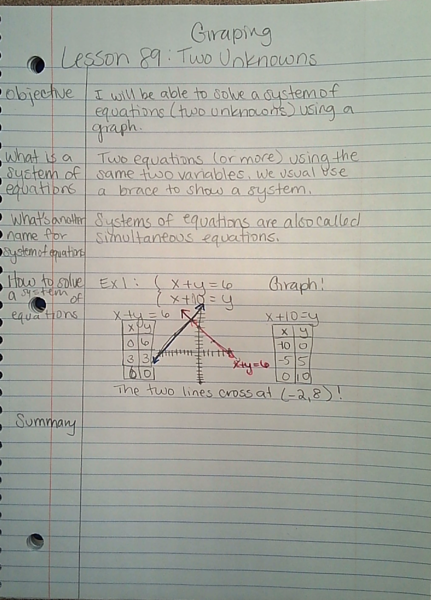 Giraping
Lesson 89: Two Unknowns
Objective
I will be able to solve a system of
equations (two unknowns) using a
graph.
What is a
system of
equations
Two equations (or more) using the
same two variables. We usual use
a brace to show a system.
What's another
name for
system of equations
Systems of equations are also called
simultaneous equations.
How to solve
a system of
equations
Ex 1: { x+y=6
{ x+10=y
Graph!
x+y=6
x y
0 6
3 3
6 0
x+y=6
x+10=y
x y
-10 0
-5 5
0 10
The two lines cross at (-2,8)!
Summary